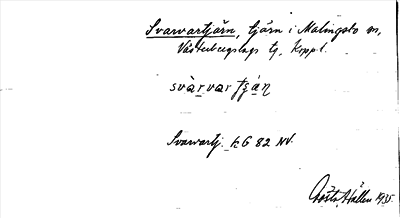 Svarvartjärn, tjärn i Malingsbo sn,
Västerbergslags tg, Kopp l.
svàrvar
Svarvartj. k G 82 NV.
Gösta Hallén 1935.